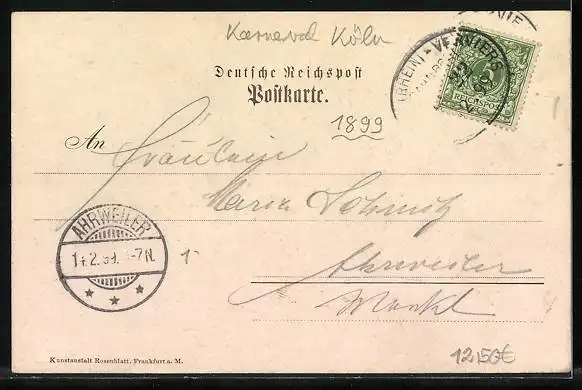 Karneval Köln
Deutsche Reichspost
Postkarte.
1899
(RHEIN) - VERVIERS
REICHSPOST
An Fräulein
Maria Schmitz
Ahrweiler
Markt
AHRWEILER
14.2.99. 6-7N.
1
Kunstanstalt Rosenblatt, Frankfurt a. M.
12,50€